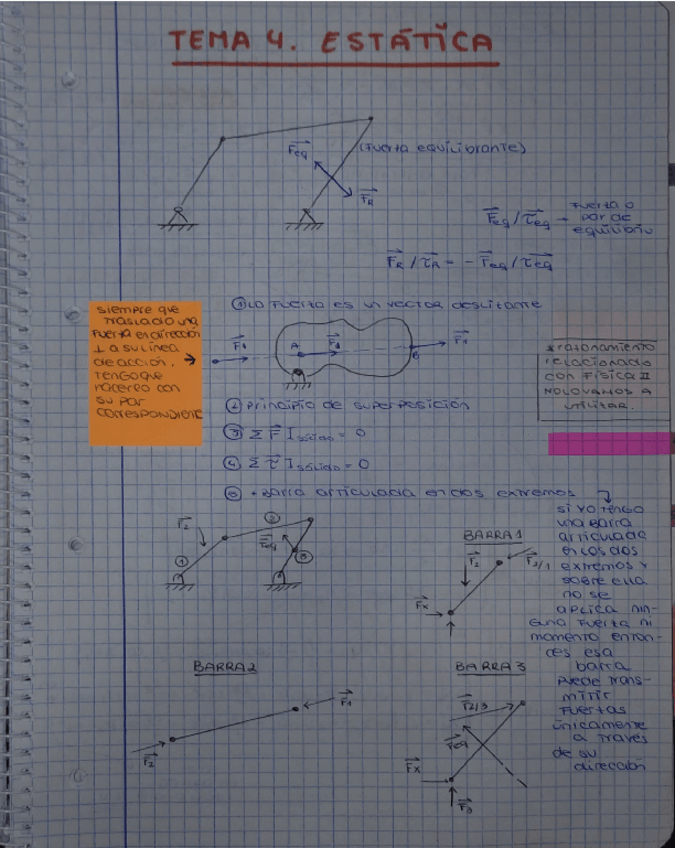 TEMA 4. ESTÁTICA
Feq
(fuerta equilibrante)
FR
Feq / τeq → Fuerta o
par de
equilibrio
FR / τR = - Feq / τeq
① La fuerta es un vector deslitante
siempre que
traslado una
fuerta en dirección
⊥ a su línea
de acción,
tengo que
hacerlo con
su par
correspondiente
F1
A
F1
B
F1
razonamiento
relacionado
con Física II
no lo vamos a
utilitar.
② principio de superposición
③ Σ F ]sólido = 0
④ Σ τ ]sólido = 0
⑤ + Barra articulada en dos extremos
si yo tengo
una barra
articulada
en los dos
extremos y
sobre ella
no se
aplica nin-
guna fuerta ni
momento enton-
ces esa
barra
puede trans-
mitir
fuertas
únicamente
a través
de su
dirección
F2
②
①
Feq
③
BARRA 1
F2
F2/1
Fx
BARRA 2
F1
F2
BARRA 3
F2/3
Feq
Fx